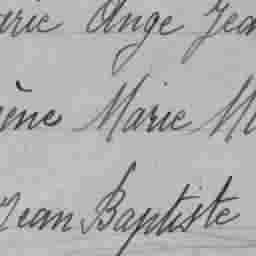 arie Ange Jea
ène Marie M
Jean Baptiste